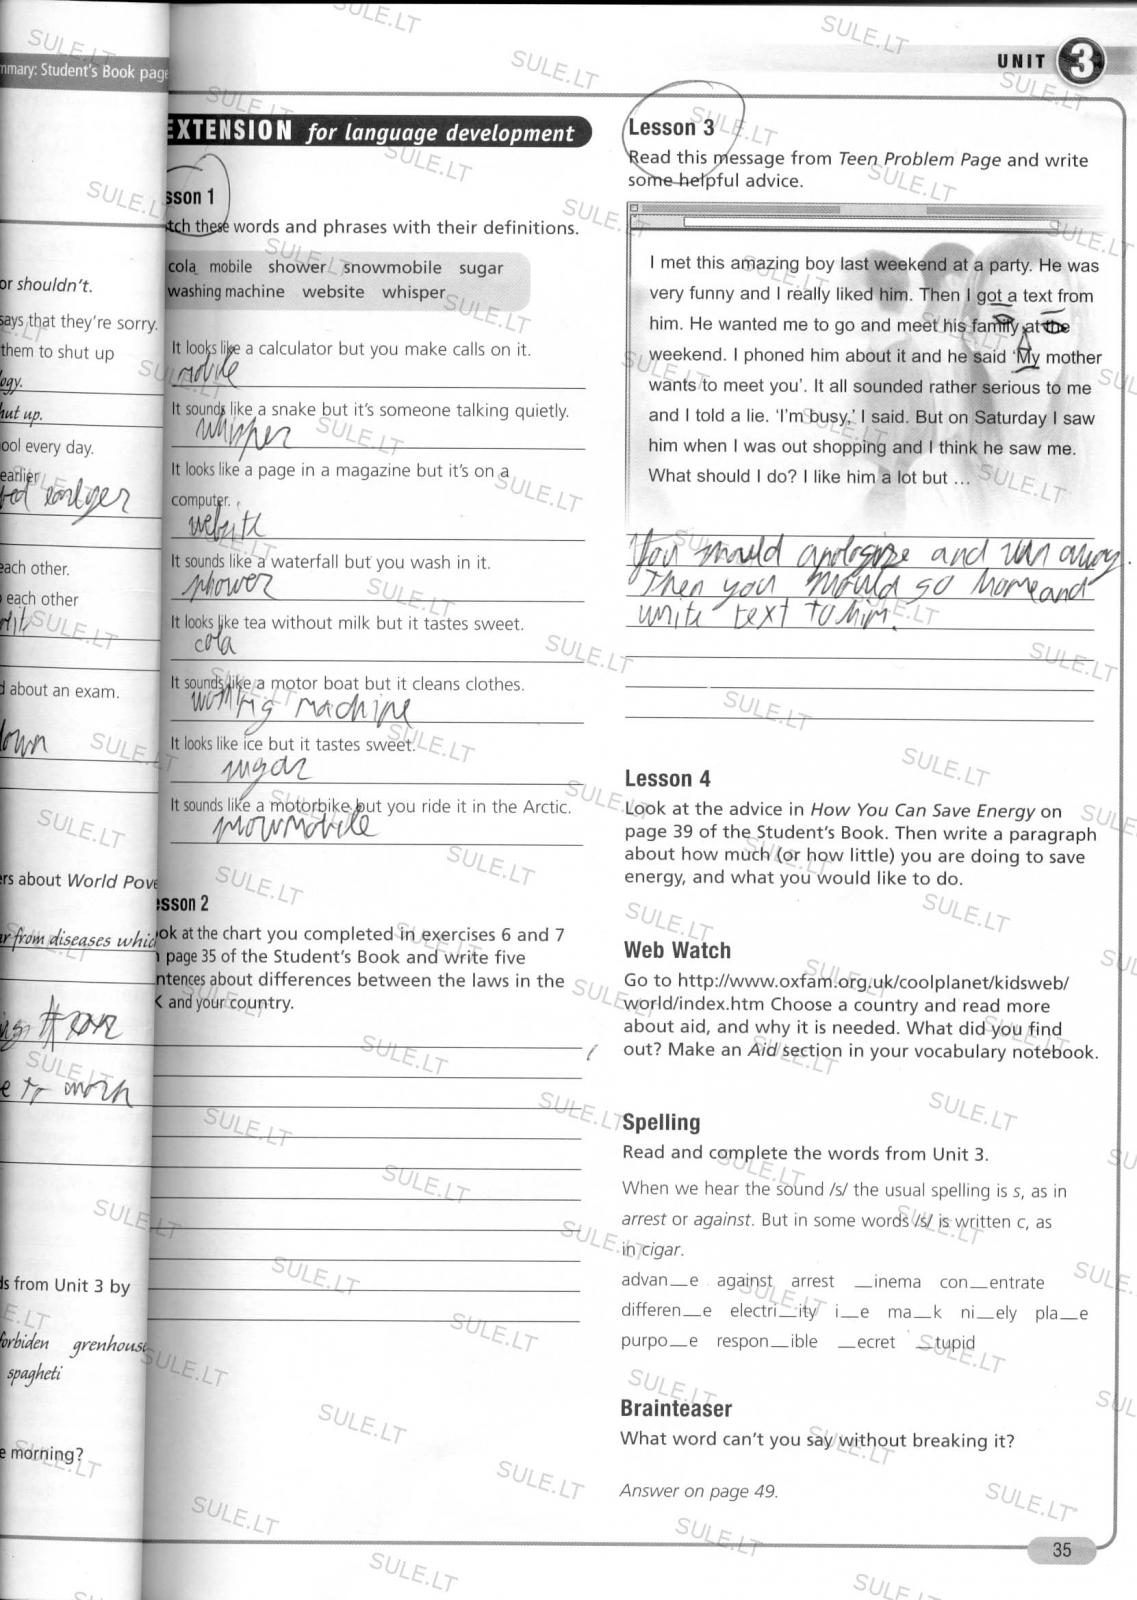 mmary: Student's Book page
or shouldn't.
says that they're sorry.
them to shut up
ogy.
hut up.
ool every day.
earlier
each other.
each other
d about an exam.
down
ers about World Pove
er from diseases which
e to work
ds from Unit 3 by
forbiden grenhouse
spagheti
e morning?
UNIT 3
EXTENSION for language development
sson 1
tch these words and phrases with their definitions.
cola mobile shower snowmobile sugar
washing machine website whisper
It looks like a calculator but you make calls on it.
mobile
It sounds like a snake but it's someone talking quietly.
whisper
It looks like a page in a magazine but it's on a
computer.
website
It sounds like a waterfall but you wash in it.
shower
It looks like tea without milk but it tastes sweet.
cola
It sounds like a motor boat but it cleans clothes.
washing machine
It looks like ice but it tastes sweet.
sugar
It sounds like a motorbike but you ride it in the Arctic.
snowmobile
esson 2
ok at the chart you completed in exercises 6 and 7
page 35 of the Student's Book and write five
ntences about differences between the laws in the
K and your country.
Lesson 3
Read this message from Teen Problem Page and write
some helpful advice.
I met this amazing boy last weekend at a party. He was
very funny and I really liked him. Then I got a text from
him. He wanted me to go and meet his family at the
weekend. I phoned him about it and he said 'My mother
wants to meet you'. It all sounded rather serious to me
and I told a lie. 'I'm busy,' I said. But on Saturday I saw
him when I was out shopping and I think he saw me.
What should I do? I like him a lot but ...
You should apologize and run away.
Then you should go home and
write text to him.
Lesson 4
Look at the advice in How You Can Save Energy on
page 39 of the Student's Book. Then write a paragraph
about how much (or how little) you are doing to save
energy, and what you would like to do.
Web Watch
Go to http://www.oxfam.org.uk/coolplanet/kidsweb/
world/index.htm Choose a country and read more
about aid, and why it is needed. What did you find
out? Make an Aid section in your vocabulary notebook.
Spelling
Read and complete the words from Unit 3.
When we hear the sound /s/ the usual spelling is s, as in
arrest or against. But in some words /s/ is written c, as
in cigar.
advan__e against arrest __inema con__entrate
differen__e electri__ity i__e ma__k ni__ely pla__e
purpo__e respon__ible __ecret __tupid
Brainteaser
What word can't you say without breaking it?
Answer on page 49.
35
SULE.LT